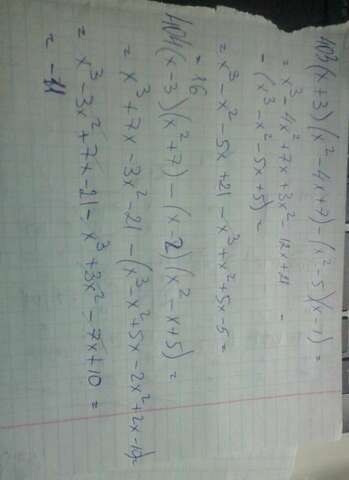 403(x+3)(x²-4x+7)-(x²-5)(x-1)=
=x³-4x²+7x+3x²-12x+21 -
-(x³-x²-5x+5)=
=x³-x²-5x+21-x³+x²+5x-5=
=16
404(x-3)(x²+7)-(x-2)(x²-x+5)=
=x³+7x-3x²-21-(x³-x²+5x-2x²+2x-10)=
=x³-3x²+7x-21-x³+3x²-7x+10=
=-11